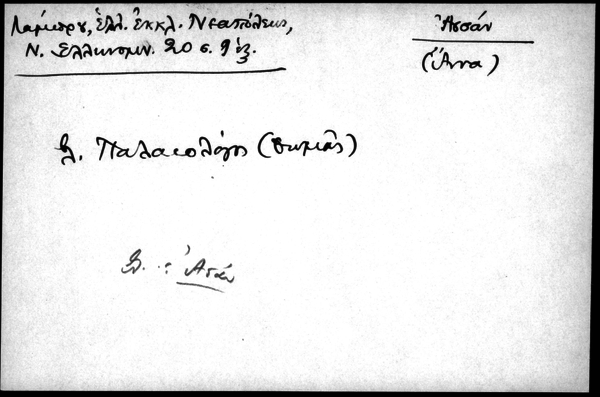 Λάμπρου, Ἑλλ. Ἐκκλ. Νεαπόλεως,
Ν. Ἑλληνομν. 20 σ. 9 ἑξ.
Ἀσάν
(Ἄννα)
βλ. Παλαιολόγος (Θωμᾶς)
βλ. : Ἀσάν